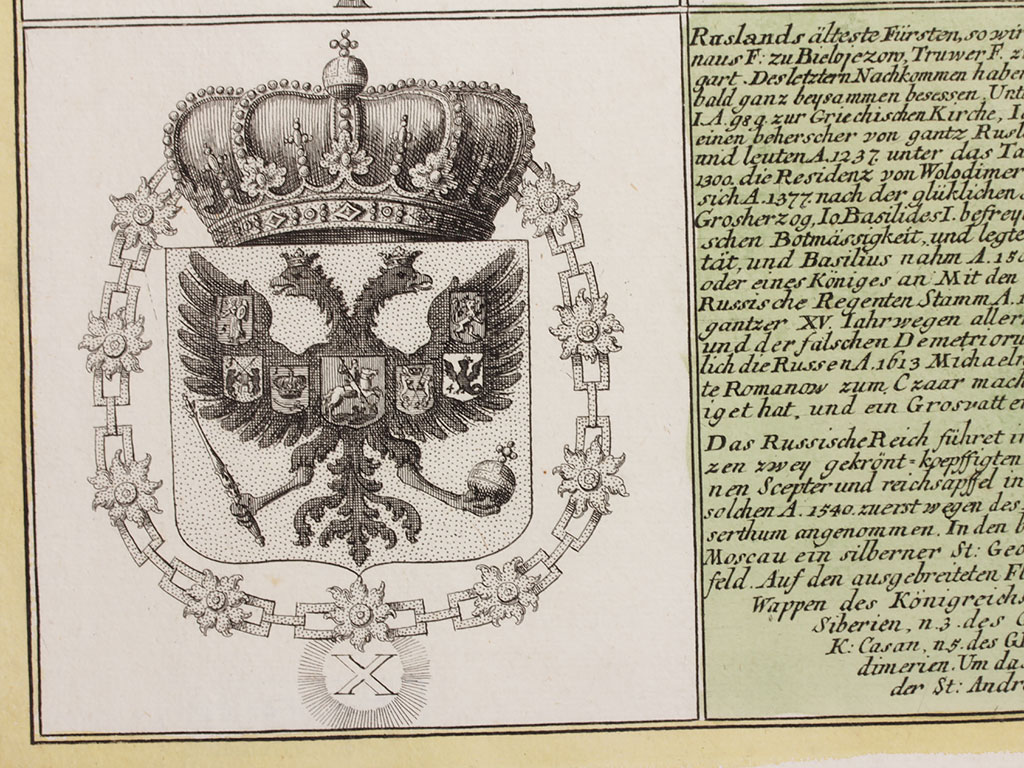 Ruslands älteste Fürsten, so wir
naus F: zu Bielojezow, Truwer F. z
gart. Des letztern Nachkommen haben
bald ganz beysammen besessen. Unt
I. A. 989. zur Griechischen Kirche, I
einen beherscher von gantz Rusl
und leuten A. 1237. unter das Ta
1300. die Residenz von Wolodimer
sich A. 1377. nach der glüklichen
Grosherzog, Io Basilides I. befrey
schen Botmässigkeit, und legte
tät, und Basilius nahm A.
oder eines Königes an. Mit den
Russische Regenten Stamm A. 1
gantzer XV. Iahr wegen aller
und der falschen Demetrioru
lich die Russen A. 1613 Michael
te Romanow zum Czaar mach
iget hat, und ein Grosvatter
Das Russische Reich führet in
zen zwey gekrönt=koepffigten
nen Scepter und reichsapffel in
solchen A. 1540. zuerst wegen des
serthum angenommen. In den b
Moscau ein silberner St: Geo
feld. Auf den ausgebreiteten Fl
Wappen des Königreichs
Siberien, n. 3. des
K: Casan, n. 5. des G
dimerien. Um da
der St: Andr
X